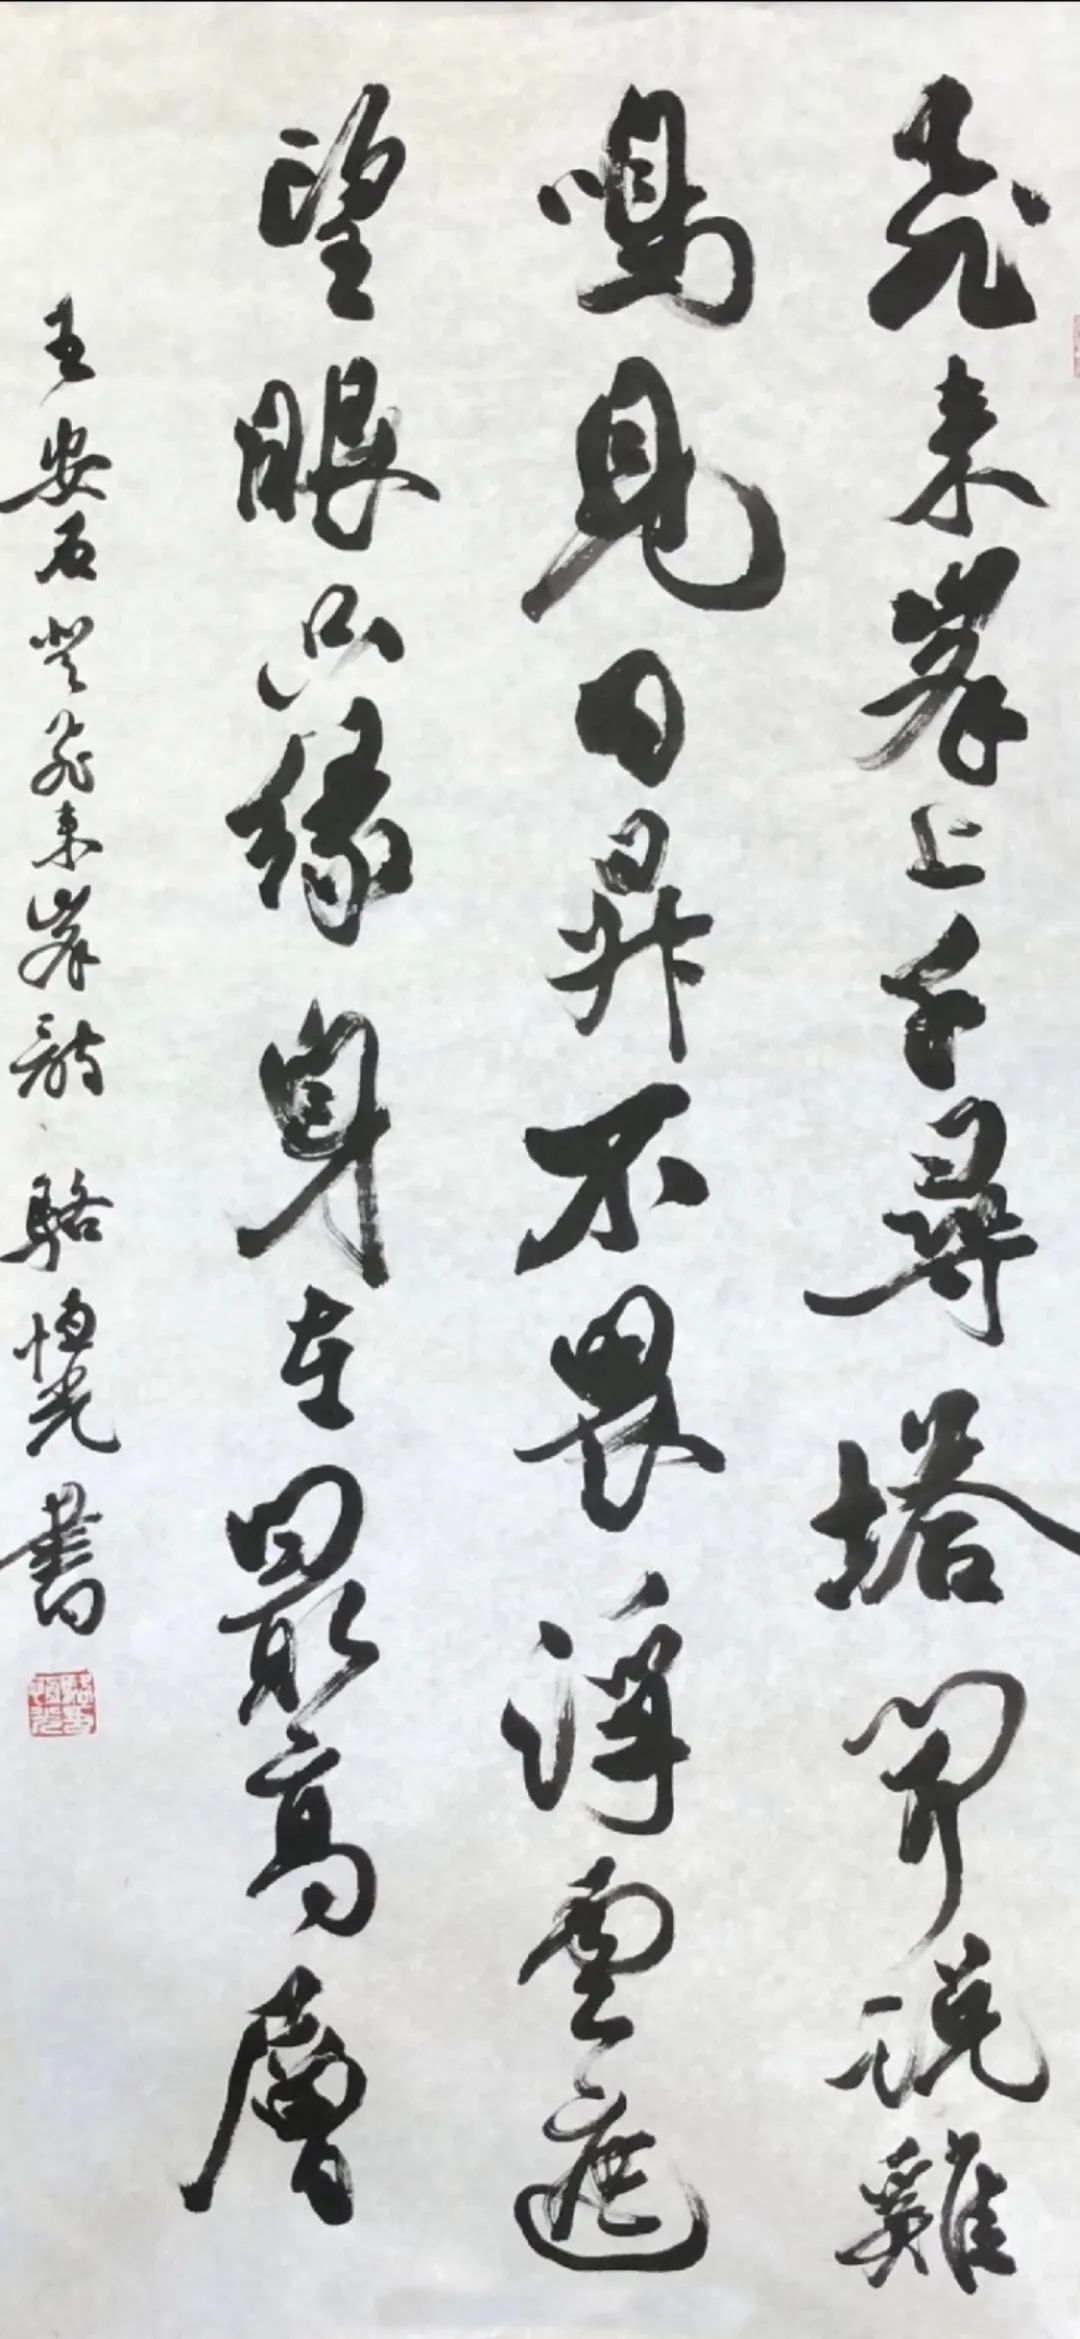 飛来峯上千尋塔聞説雞
鳴見日昇不畏浮雲遮
望眼只緣身在最高層
王安石登飛来峯詩 駱恒光書
駱恒光